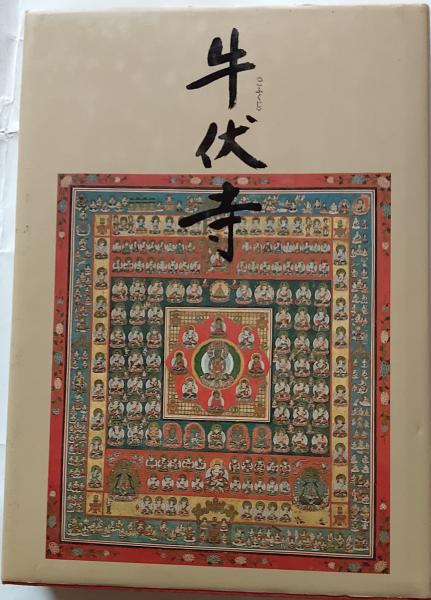 牛伏寺
ごふくじ